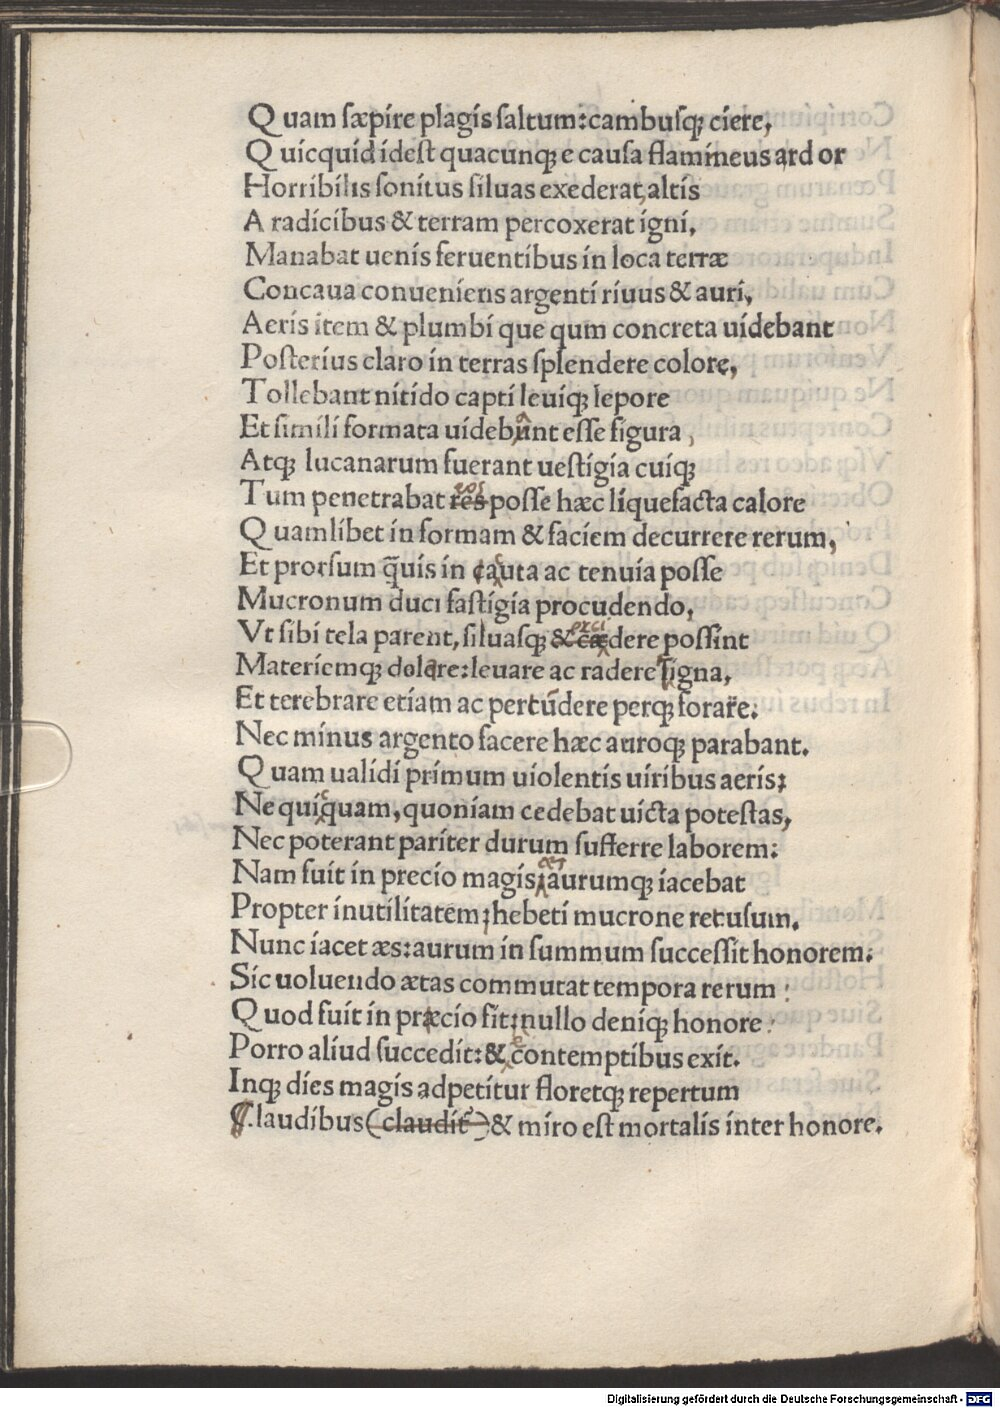 Quam sæpire plagis saltum:cambusq; ciere,
Quicquid id est quacunq; e causa flamineus ardor
Horribilis sonitus siluas exederat,altis
A radicibus & terram percoxerat igni,
Manabat uenis feruentibus in loca terræ
Concaua conueniens argenti riuus & auri,
Aeris item & plumbi que qum concreta uidebant
Posterius claro in terras splendere colore,
Tollebant nitido capti leuiq; lepore
Et simili formata uidebunt esse figura,
Atq; lucanarum fuerant uestigia cuiq;
eos
Tum penetrabat res posse hæc liquefacta calore
Quamlibet in formam & faciem decurrere rerum,
Et prorsum q̃uis in cauta ac tenuia posse
Mucronum duci fastigia procudendo,
exci
Vt sibi tela parent, siluasq; & cædere possint
Materiemq; dolare:leuare ac radere tigna,
Et terebrare etiam ac pertũdere perq; forare:
Nec minus argento facere hæc auroq; parabant.
Quam ualidi primum uiolentis uiribus aeris;
Ne quicquam, quoniam cedebat uicta potestas,
Nec poterant pariter durum sufferre laborem:
æs
Nam fuit in precio magis;aurumq; iacebat
Propter inutilitatem;hebeti mucrone retusum.
Nunc iacet æs:aurum in summum successit honorem:
Sic uoluendo ætas commutat tempora rerum:
Quod fuit in præcio fit;nullo deniq; honore:
Porro aliud succedit:& e contemptibus exit.
Inq; dies magis adpetitur floretq; repertum
.laudibus (claudit) & miro est mortalis inter honore.
Digitalisierung gefördert durch die Deutsche Forschungsgemeinschaft - DFG